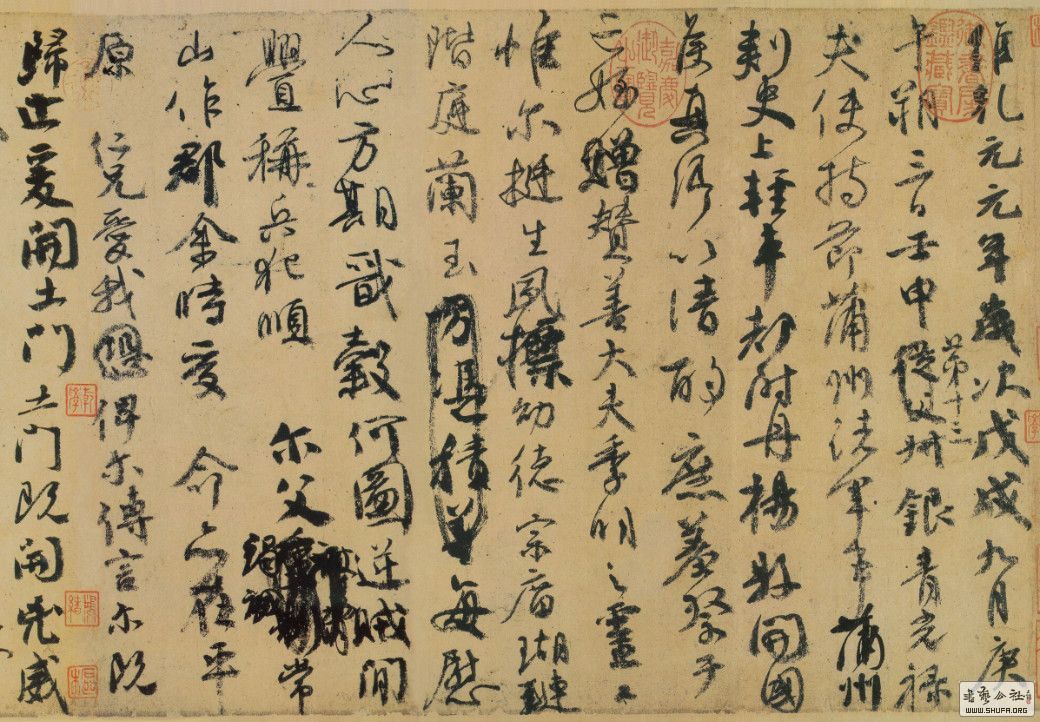 維乾元元年歲次戊戌九月庚
午朔三日壬申第十三叔銀青光祿
夫使持節蒲州諸軍事蒲州
刺史上輕車都尉丹楊縣開國
侯真卿以清酌庶羞祭于
亡姪贈贊善大夫季明之靈曰
惟尔挺生夙標幼德宗廟瑚璉
階庭蘭玉方憑積善每慰
人心方期戩穀何圖逆賊閒
釁稱兵犯順 尔父常
山作郡余時受 命亦在平
原 仁兄愛我恐俾尔傳言尔既
歸止爰開土門土門既開凶威
嘉慶御覽之寶
WWW.SHUFA.ORG